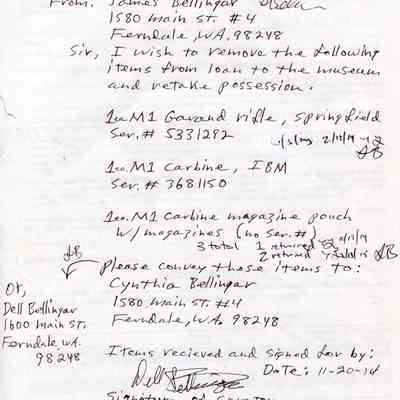 From: James Bellingar
1580 main st. #4
Ferndale, WA. 98248
Sir, I wish to remove the following
items from loan to the museum
and retake possession.
1ea. M1 Garand rifle, Springfield
Ser. # 5331292
2/11/19
AB
1ea. M1 Carbine, IBM
Ser. # 3681150
1ea. M1 Carbine magazine pouch
w/magazines (no ser. #)
3 total 1 returned
2 returned
AB
AB
Please convey these items to:
Cynthia Bellingar
1580 main st. #4
Ferndale, WA. 98248
or,
Dell Bellingar
1600 main st.
Ferndale, WA.
98248
Items recieved and signed for by:
Dell Bellingar
Date: 11-20-14
Signature of